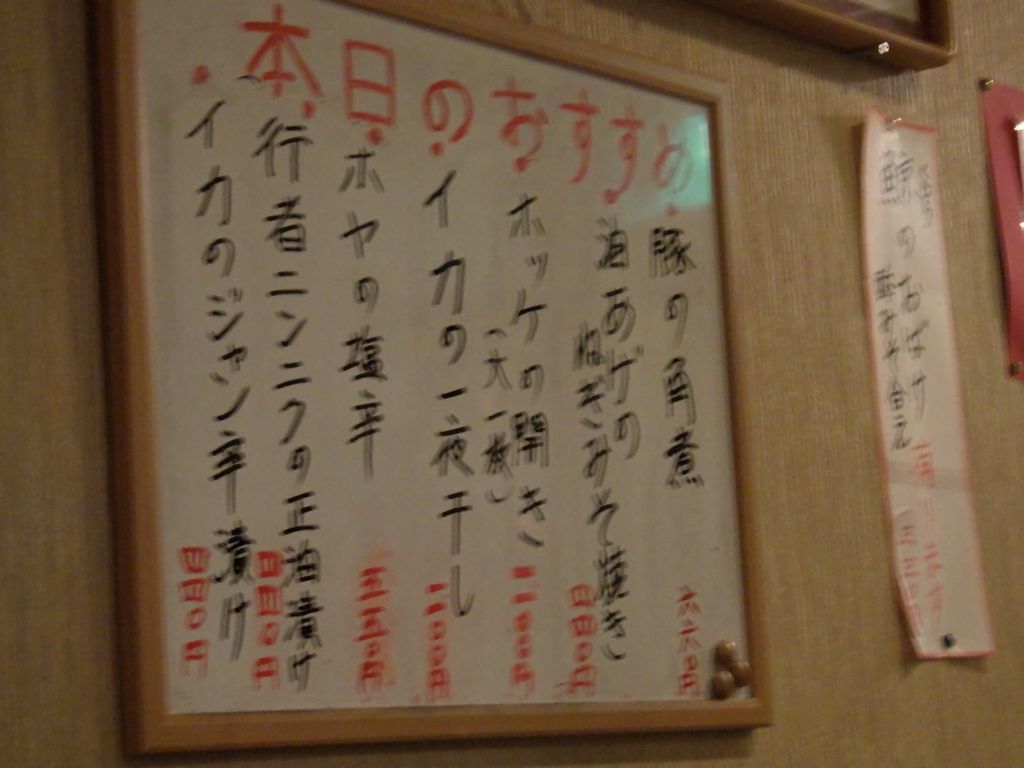 本日のおすすめ
・豚の角煮 六六〇円
・油あげのねぎみそ焼き 四四〇円
・ホッケの開き
(大一枚)
・イカの一夜干し
・ホヤの塩辛 五五〇円
・行者ニンニクの正油漬け 四四〇円
・イカのジャン辛漬け 四四〇円
鯨のおばけ